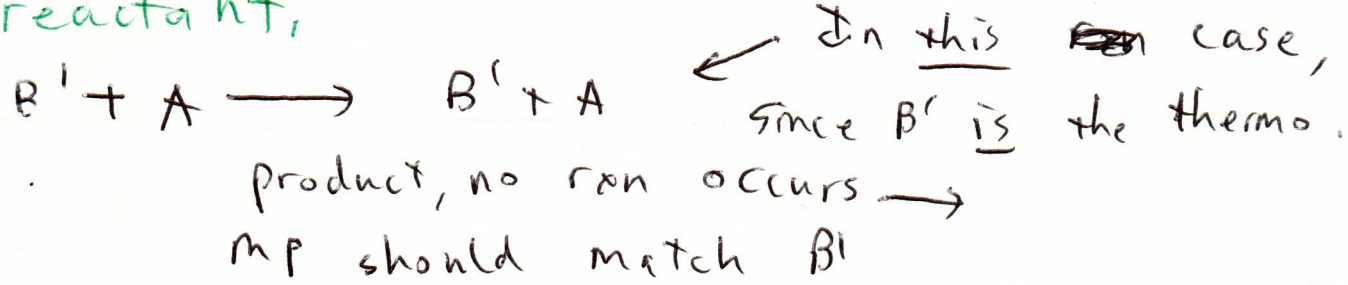 reactant,
In this case,
B' + A ⟶ B' + A
since B' is the thermo.
product, no rxn occurs ⟶
mp should match B'